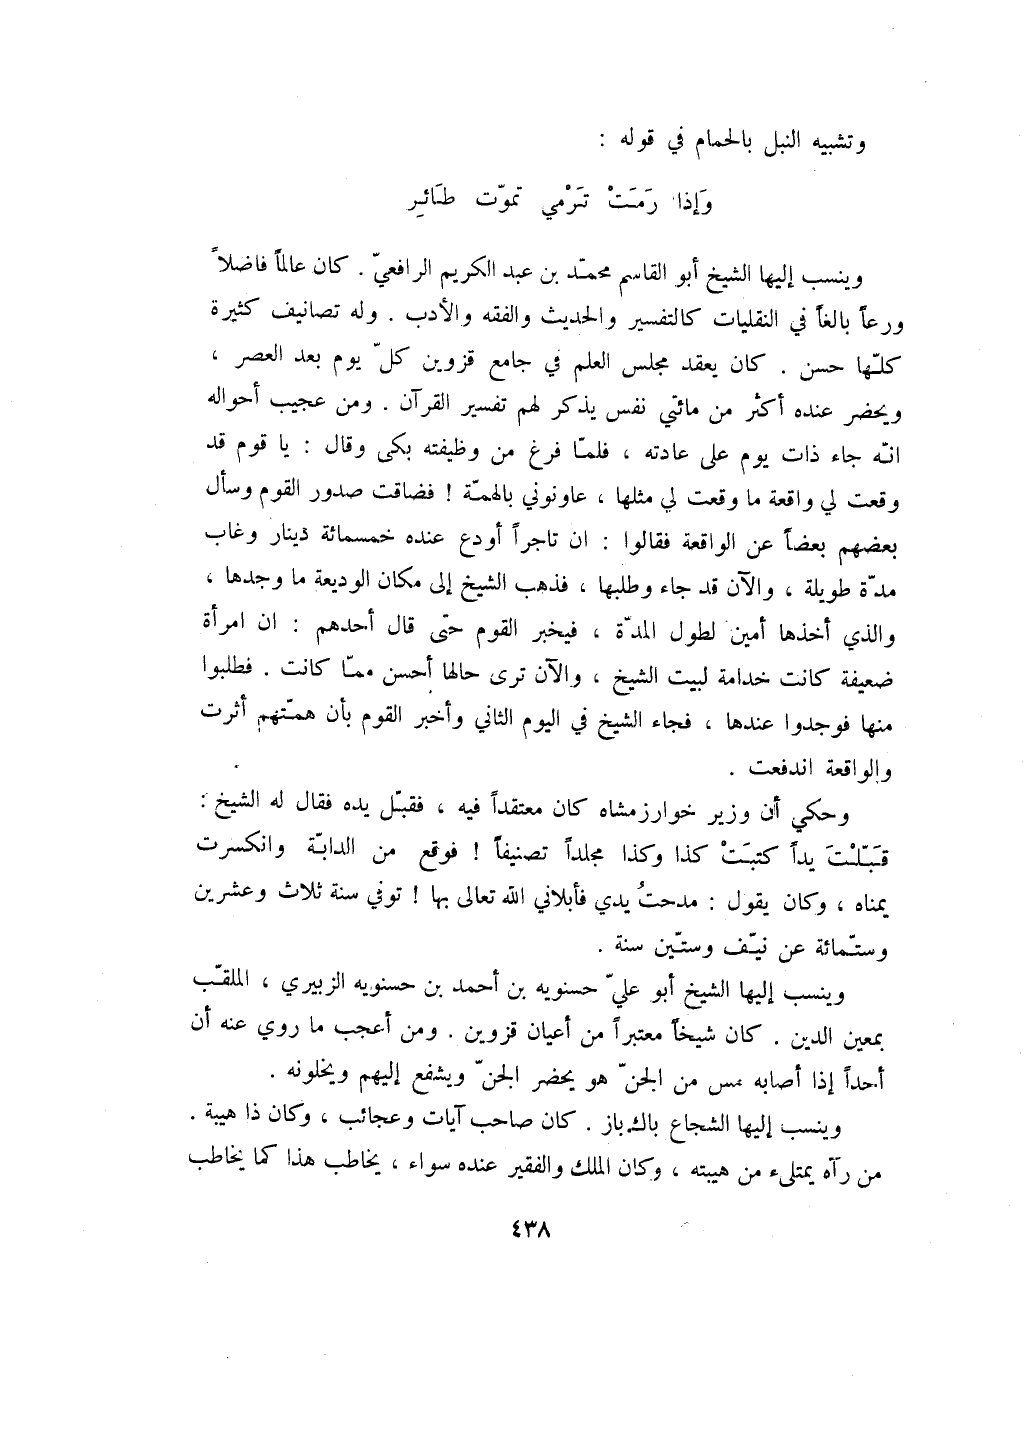 وتشبيه النبل بالحمام في قوله :
وَإذا رَمَتْ تَرْمي تموّت طَائِر
وينسب إليها الشيخ أبو القاسم محمّد بن عبد الكريم الرافعيّ . كان عالماً فاضلاً
ورعاً بالغاً في النقليات كالتفسير والحديث والفقه والأدب . وله تصانيف كثيرة
كلّها حسن . كان يعقد مجلس العلم في جامع قزوين كلّ يوم بعد العصر ،
ويحضر عنده أكثر من مائتي نفس يذكر لهم تفسير القرآن . ومن عجيب أحواله
انّه جاء ذات يوم على عادته ، فلمّا فرغ من وظيفته بكى وقال : يا قوم قد
وقعت لي واقعة ما وقعت لي مثلها ، عاونوني بالهمّة ! فضاقت صدور القوم وسأل
بعضهم بعضاً عن الواقعة فقالوا : ان تاجراً أودع عنده خمسمائة دينار وغاب
مدّة طويلة ، والآن قد جاء وطلبها ، فذهب الشيخ إلى مكان الوديعة ما وجدها ،
والذي أخذها أمين لطول المدّة ، فيخبر القوم حتى قال أحدهم : ان امرأة
ضعيفة كانت خدامة لبيت الشيخ ، والآن ترى حالها أحسن ممّا كانت . فطلبوا
منها فوجدوا عندها ، فجاء الشيخ في اليوم الثاني وأخبر القوم بأن همّتهم أثرت
والواقعة اندفعت .
وحكي أن وزير خوارزمشاه كان معتقداً فيه ، فقبّل يده فقال له الشيخ :
قَبّلْتَ يداً كتبَتْ كذا وكذا مجلداً تصنيفاً ! فوقع من الدابّة وانكسرت
يمناه ، وكان يقول : مدحتُ يدي فأبلاني الله تعالى بها ! توفي سنة ثلاث وعشرين
وستّمائة عن نيّف وستّين سنة .
وينسب إليها الشيخ أبو عليّ حسنويه بن أحمد بن حسنويه الزبيري ، الملقّب
بمعين الدين . كان شيخاً معتبراً من أعيان قزوين . ومن أعجب ما روي عنه أن
أحداً إذا أصابه مس من الجنّ هو يحضر الجنّ ويشفع إليهم ويخلونه .
وينسب إليها الشجاع باك باز . كان صاحب آيات وعجائب ، وكان ذا هيبة .
من رآه يمتلىء من هيبته ، وكان الملك والفقير عنده سواء ، يخاطب هذا كما يخاطب
٤٣٨